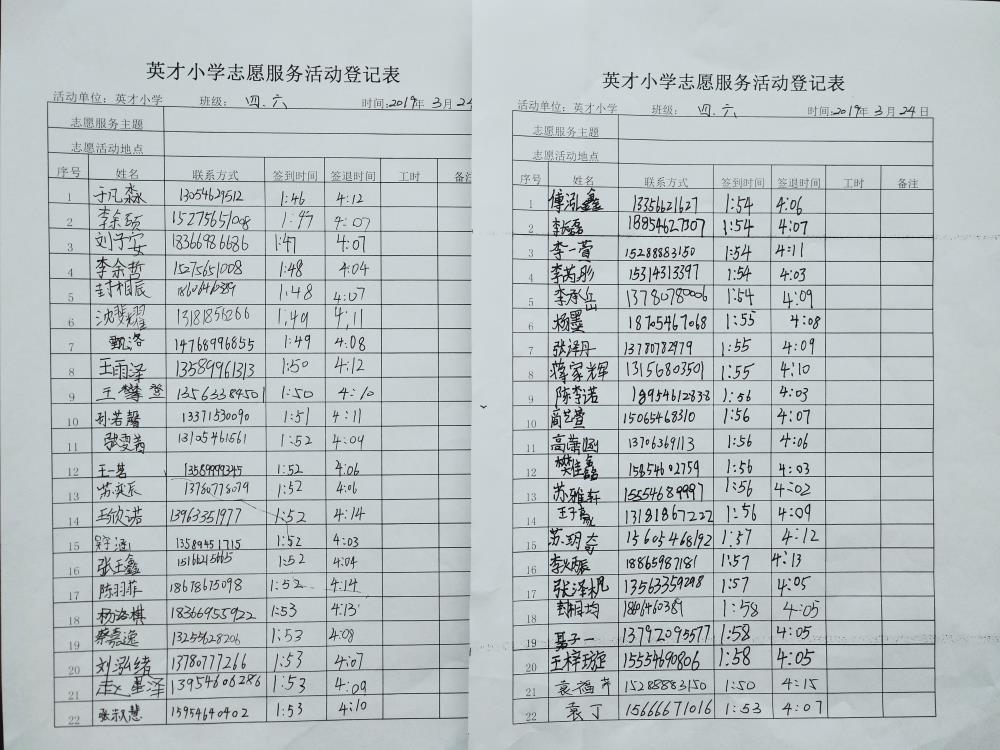 英才小学志愿服务活动登记表
活动单位：英才小学 班级：四.六 时间：2019年3月24
志愿服务主题
志愿活动地点
序号 姓名 联系方式 签到时间 签退时间 工时 备注
1 于凡淼 13054629512 1:46 4:12
2 李余硕 15275651008 1:47 4:07
3 刘子安 18366986686 1:47 4:07
4 李余哲 15275651008 1:48 4:04
5 封相辰 1:48 4:07
6 沈斐耀 13181851266 1:49 4:11
7 甄洛 14768996855 1:49 4:08
8 王雨泽 13589961313 1:50 4:12
9 王攀登 13563384501 1:50 4:10
10 孙若馨 13371530090 1:51 4:11
11 张雯茜 13105461561 1:52 4:09
12 王一茗 13589999345 1:52 4:06
13 苏奕辰 13780778079 1:52 4:06
14 王欣诺 13963351977 1:52 4:14
15 13589451715 1:52 4:03
16 张玉鑫 15166215665 1:52 4:04
17 陈羽菲 18678675098 1:52 4:14
18 杨洛棋 18366955922 1:53 4:13
19 蔡嘉逸 13255628206 1:53 4:08
20 刘泓绪 13780777266 1:53 4:07
21 赵星泽 13954606286 1:53 4:09
22 张淑慧 15954640402 1:53 4:10
英才小学志愿服务活动登记表
活动单位：英才小学 班级：四.六 时间：2019年3月24日
志愿服务主题
志愿活动地点
序号 姓名 联系方式 签到时间 签退时间 工时 备注
1 傅泓鑫 13356621627 1:54 4:06
2 李磊 18854627307 1:54 4:07
3 李一萱 15288883150 1:54 4:11
4 李芮彤 15314313397 1:54 4:03
5 李承岳 13780780006 1:54 4:09
6 杨墨 18705467068 1:55 4:08
7 张泽丹 13780782979 1:55 4:09
8 蒋家辉 13156803501 1:55 4:10
9 陈李诺 1:56 4:03
10 蔺艺萱 15065468310 1:56 4:07
11 高萧涵 13706369113 1:56 4:06
12 樊佳鑫 15854602759 1:56 4:03
13 苏雅轩 15554689997 1:56 4:02
14 王子 13181867222 1:56 4:09
15 苏玥 15605468192 1:57 4:12
16 李炳辰 18865987181 1:57 4:13
17 张泽机 13563359298 1:57 4:05
18 封相均 1:58 4:05
19 聂子一 13792095577 1:58 4:05
20 王梓璇 15554690806 1:58 4:05
21 袁福芹 15288883150 1:50 4:15
22 袁丁 15666671016 1:53 4:07